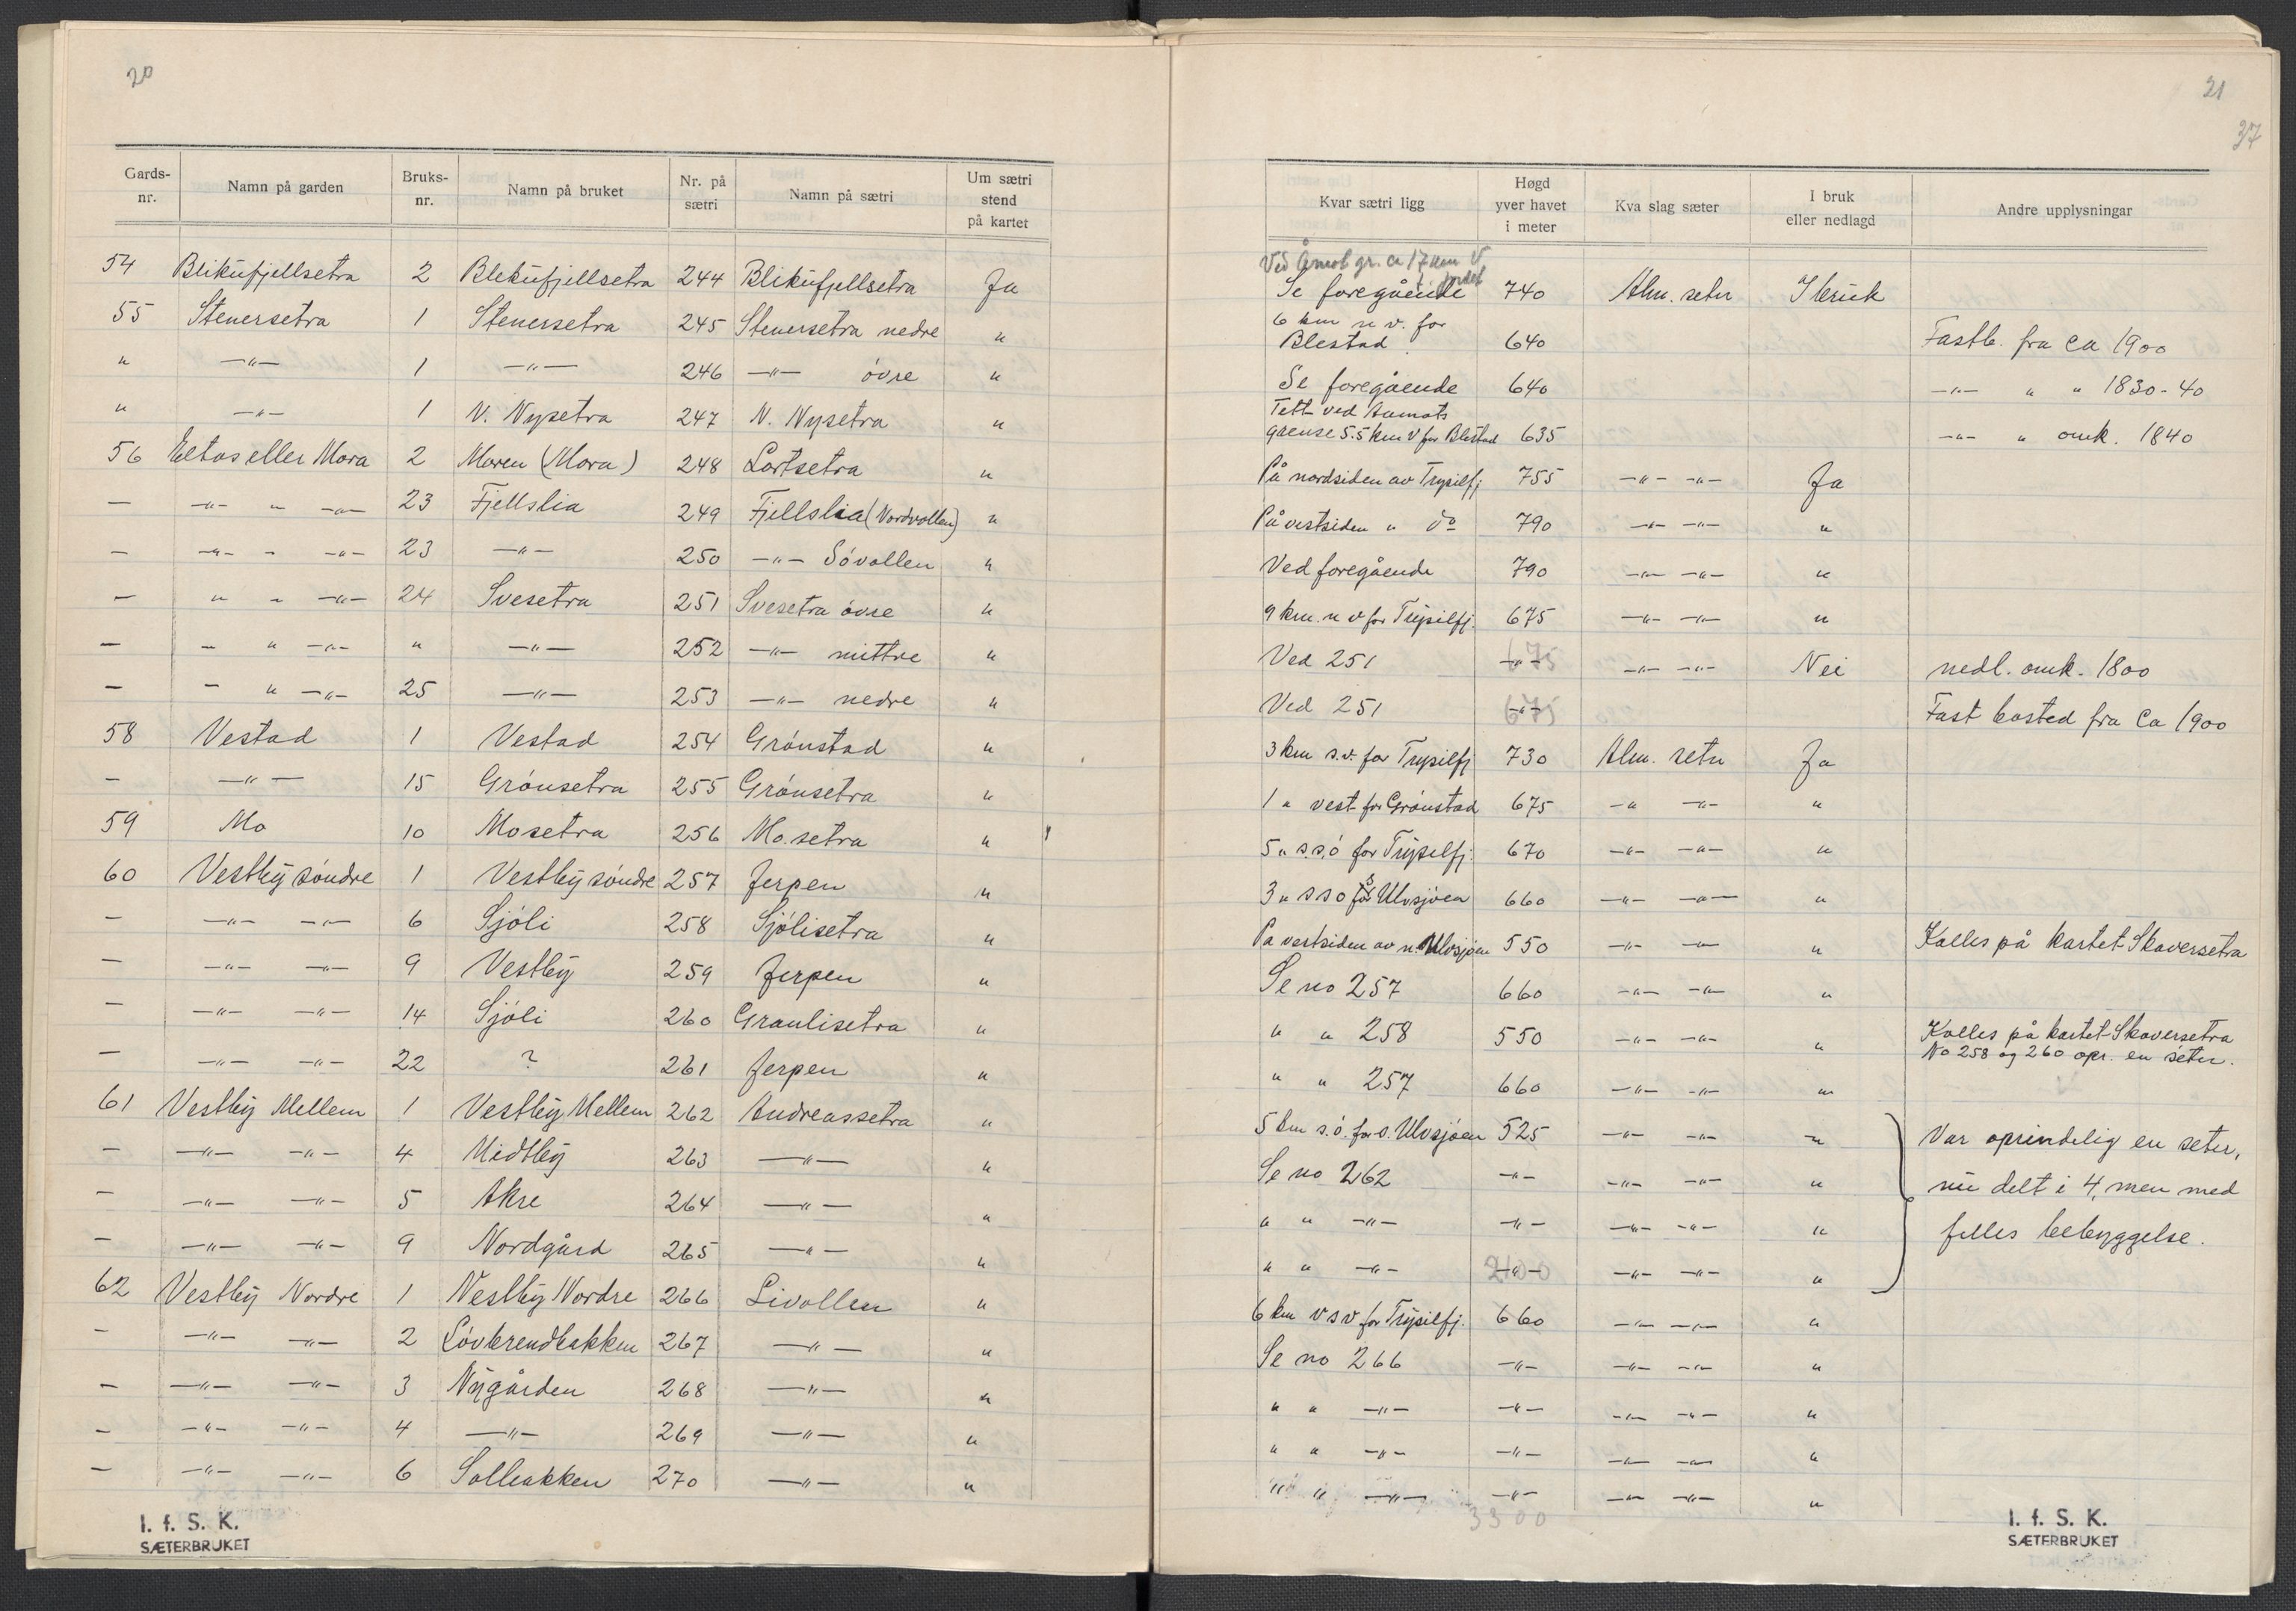 20
Gards-nr. Namn på garden Bruks-nr. Namn på bruket Nr. på sætri Namn på sætri Um sætri stend på kartet
54 Blikufjellsetra 2 Blekufjellsetra 244 Blikufjellsetra Ja
55 Stenersetra 1 Stenersetra 245 Stenersetra nedre "
" —"— 1 —"— 246 —"— óvre "
" —"— 1 N. Nysetra 247 N. Nysetra "
56 Eltos eller Mora 2 Moren (Mora) 248 Lortsetra "
— —"— " —"— 23 Fjellslia 249 Fjellslia (Nordvollen) "
— —"— - —"— 23 —"— 250 —"— Sóvollen "
— " - —"— 24 Svesetra 251 Svesetra óvre "
— - " —"— " —"— 252 —"— mittre "
— - " —"— 25 —"— 253 —"— nedre "
58 Vestad 1 Vestad 254 Grónstad "
- —"— 15 Grónsetra 255 Grónsetra "
59 Mo 10 Mosetra 256 Mo.setra "
60 Vestby sóndre 1 Vestby sóndre 257 Jerpen "
- —"— —"— 6 Sjóli 258 Sjólisetra "
- —"— —"— 9 Vestby 259 Jerpen "
- —"— —"— 14 Sjóli 260 Graulisetra "
- —"— —"— 22 ? 261 Jerpen "
61 Vestby Mellem 1 Vestby Mellem 262 Andreassetra "
- —"— —"— 4 Midtby 263 —"— "
- —"— —"— 5 Akre 264 —"— "
- —"— —"— 9 Nordgård 265 —"— "
62 Vestby Nordre 1 Vestby Nordre 266 Livollen "
- —"— —"— 2 Lóvbrendbakken 267 —"— "
- —"— —"— 3 Nygården 268 —"— "
- —"— —"— 4 —"— 269 —"— "
- —"— —"— 6 Solbakken 270 —"— "
I. f. S. K.
SÆTERBRUKET
21
37
Kvar sætri ligg Høgd yver havet i meter Kva slag sæter I bruk eller nedlagd Andre upplysningar
Ved Åmot gr. ca 17 km V
Se foregående 740 Alm. seter I bruk
6 km n v. for
Blestad 640 Fastb. fra ca 1900
Se foregående 640 —"— " " 1830-40
Tett ved Aamots
grense 5.5 km V for Blestad 635 —"— " omk. 1840
På nordsiden av Trysilfj 755 —"— —"— Ja
På vestsiden " do 790 —"— —"— "
Ved foregående 790 —"— —"— "
9 km. n v for Trysilfj. 675 —"— —"— "
Ved 251 —"— 675 —"— —"— Nei nedl. omk. 1800
Ved 251 —"— 675 Fast bosted fra Ca 1900
3 km s.v. for Trysilfj 730 Alm. seter Ja
1 " vest for Grónstad 675 —" —"— "
5 " s.s.ó for Trysilfj. 670 —"— —"— "
3 " s s o for s Ulvsjóen 660 —"— —"— "
Pa vestsiden av n. Ulvsjóen 550 —"— —"— " Kalles på kartet Skaversetra
Se no 257 660 —"— —"— "
" " 258 550 —"— —"— " Kalles på kartet Skaversetra
No 258 og 260 opr. en seter.
" " 257 660 —"— —"— "
5 km s.ó. for s. Ulvsjóen 525 —"— —"— " Var oprindelig en seter,
Se no 262 —"— —"— —"— " nu delt i 4, men med
" " —"— —"— —"— —"— " felles bebyggelse.
" " —"— —"— 2100 —"— —"— "
6 km v s v for Trysilfj. 660 —"— —"— "
Se no 266 —"— —"— —"— "
" " —"— —"— —"— —"— "
" " —"— —"— —"— —"— "
" " —"— —"— —"— —"— "
3300
I. f. S. K.
SÆTERBRUKET